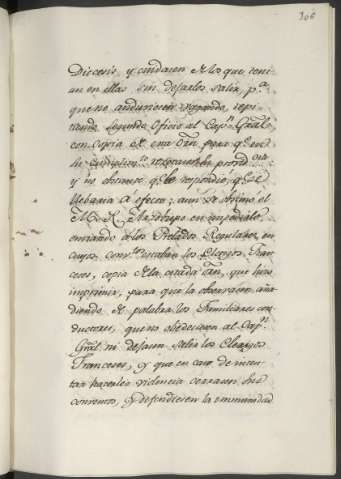 306
Diocesis, y cuidasen de los que tenian
en ellas sin dejarlos salir, p.ª
que no anduviesen vagando, repitiendo
segundo Oficio al Cap.n Gral.
con copia de esta Orn. para que en
la
y no obstante q.e le respondió, q.e se
llebaria á efecto; aun se animó el
M. R. Arzobispo en impedirlo,
enviando á los Prelados Regulares en
cuyos conv.tos estaban los Clerigos Franceses,
copia de la citada Orn, que hizo
imprimir, para que la observasen aña
diendo de palabra los Familiares con
ductores, que no obedeciesen al Cap.n
Gral. ni dejasen salir los Clerigos
Franceses, y que en caso de inten
tar hacerles violencia cerrasen los
conventos, y defendiesen la inmunidad